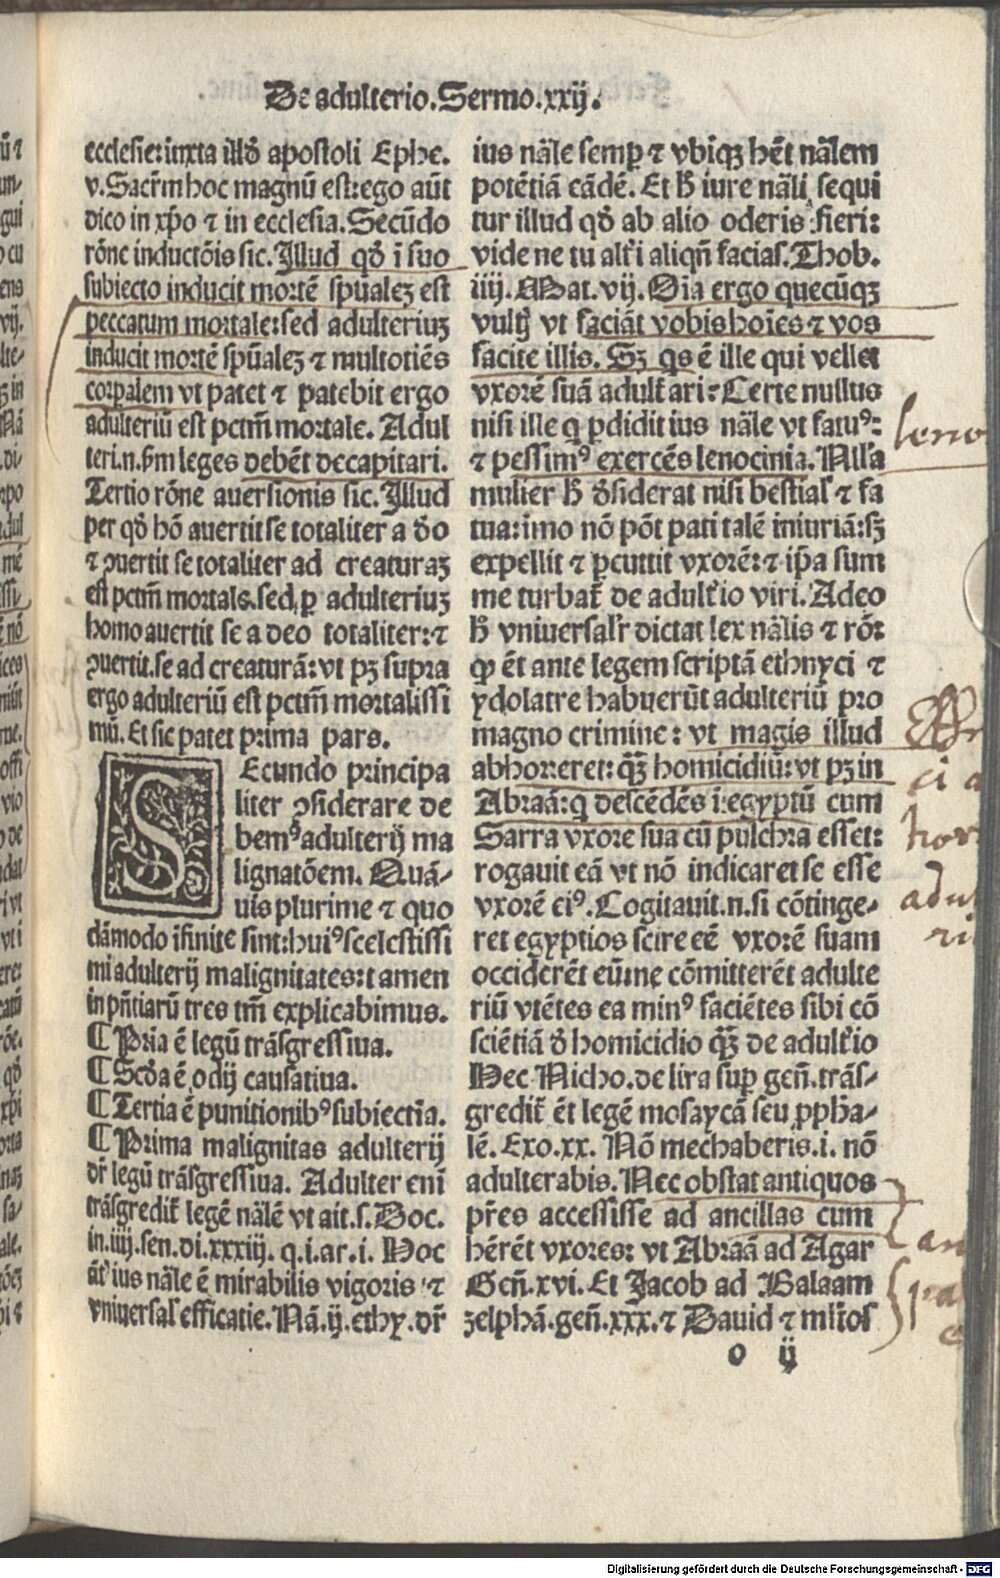 De adulterio. Sermo. xxij.
ecclesie: iuxta illđ apostoli Ephe.
v. Sacrm̄ hoc magnū est: ego aūt
dico in xp̄o ⁊ in ecclesia. Secūdo
rōne inductōis sic. Illud qđ ī suo
subiecto inducit mortē spūalez est
peccatum mortale: sed adulteriuz
inducit mortē spūalez ⁊ multotiēs
corpalem vt patet ⁊ patebit ergo
adulteriū est pctm̄ mortale. Adul
teri.n. ẜm leges debēt decapitari.
Tertio rōne auersionis sic. Illud
per qđ hō auertit se totaliter a deo
⁊ ꝯuertit se totaliter ad creaturaz
est pctm̄ mortale. sed ꝑ adulteriuz
homo auertit se a deo totaliter: ⁊
ꝯuertit. se ad creaturā: vt pꝫ supra
ergo adulteriū est pctm̄ mortalissi
mū. Et sic patet prima pars.
SEcundo principa
liter ꝯsiderare de
bemꝰ adulterij ma
lignatōem. Quā-
uis plurime ⁊ quo
dāmodo īfinite sint: huiꝰ scelestissi
mi adulterij malignitates: tamen
in pn̄tiarū tres tm̄ explicabimus.
¶ Pria ē legū trāsgressiua.
¶ Scđa ē odij causatiua.
¶ Tertia ē punitionibꝰ subiectīa.
¶ Prima malignitas adulterij
dr̄ legū trāsgressiua. Adulter enī
trāsgredit̄ legē nālē vt ait. s. Doc.
in. iiij. sen. di. xxxiij. q. i. ar. i. Hoc
āt ius nāle ē mirabilis vigoris ⁊
vniuersal' efficatie. Nā. ij. ethy. dr̄
ius nāle semꝑ ⁊ vbiqꝫ hēt nālem
potētiā eādē. Et ħ iure nāli sequi
tur illud qđ ab alio oderis fieri:
vide ne tu alt̄i aliqn̄ facias. Thob.
iiij. Mat. vij. Oīa ergo quecūqꝫ
vult̄ vt faciāt vobis hoīes ⁊ vos
facite illis. Sꝫ qs ē ille qui vellet
vxorē suā adult̄ari? Certe nullus
nisi ille q ꝑdidit ius nāle vt fatuꝰ:
⁊ pessimꝰ exercēs lenocinia. Null'a
mulier ħ đsiderat nisi bestial' ⁊ fa
tua: imo nō pōt pati talē iniuriā: sꝫ
expellit ⁊ ꝑcutit vxorē: ⁊ ip̄a sum
me turbat̄ de adult̄io viri. Adeo
ħ vniuersal'r dictat lex nālis ⁊ rō:
ꝙ ēt ante legem scriptā ethnyci ⁊
ydolatre habuerūt adulteriū pro
magno crimine: vt magis illud
abhorreret: qꝫ̄ homicidiū: vt pꝫ in
Abraā: q descēdēs ī egyptū cum
Sarra vxore sua cū pulchra esset:
rogauit eā vt nō indicaret se esse
vxorē eiꝰ. Cogitauit. n. si cōtinge-
ret egyptios scire eē vxorē suam
occiderēt eū: ne cōmitterēt adulte
riū vtētes ea minꝰ faciētes sibi cō
sciētiā đ homicidio qꝫ̄ de adult̄io
Hec Nicho. de lira sup̄ gen̄. trās-
gredit̄ ēt legē mosaycā seu ꝓpha-
lē. Exo. xx. Nō mechaberis. i. nō
adulterabis. Nec obstat antiquos
pr̄es accessisse ad ancillas cum
hērēt vxores: vt Abraā ad Agar
Gen̄. xvi. Et Jacob ad Balaam
zelphā. gen̄. xxx. ⁊ Dauid ⁊ ml̄tos
o ij
leno
Digitalisierung gefördert durch die Deutsche Forschungsgemeinschaft - DFG